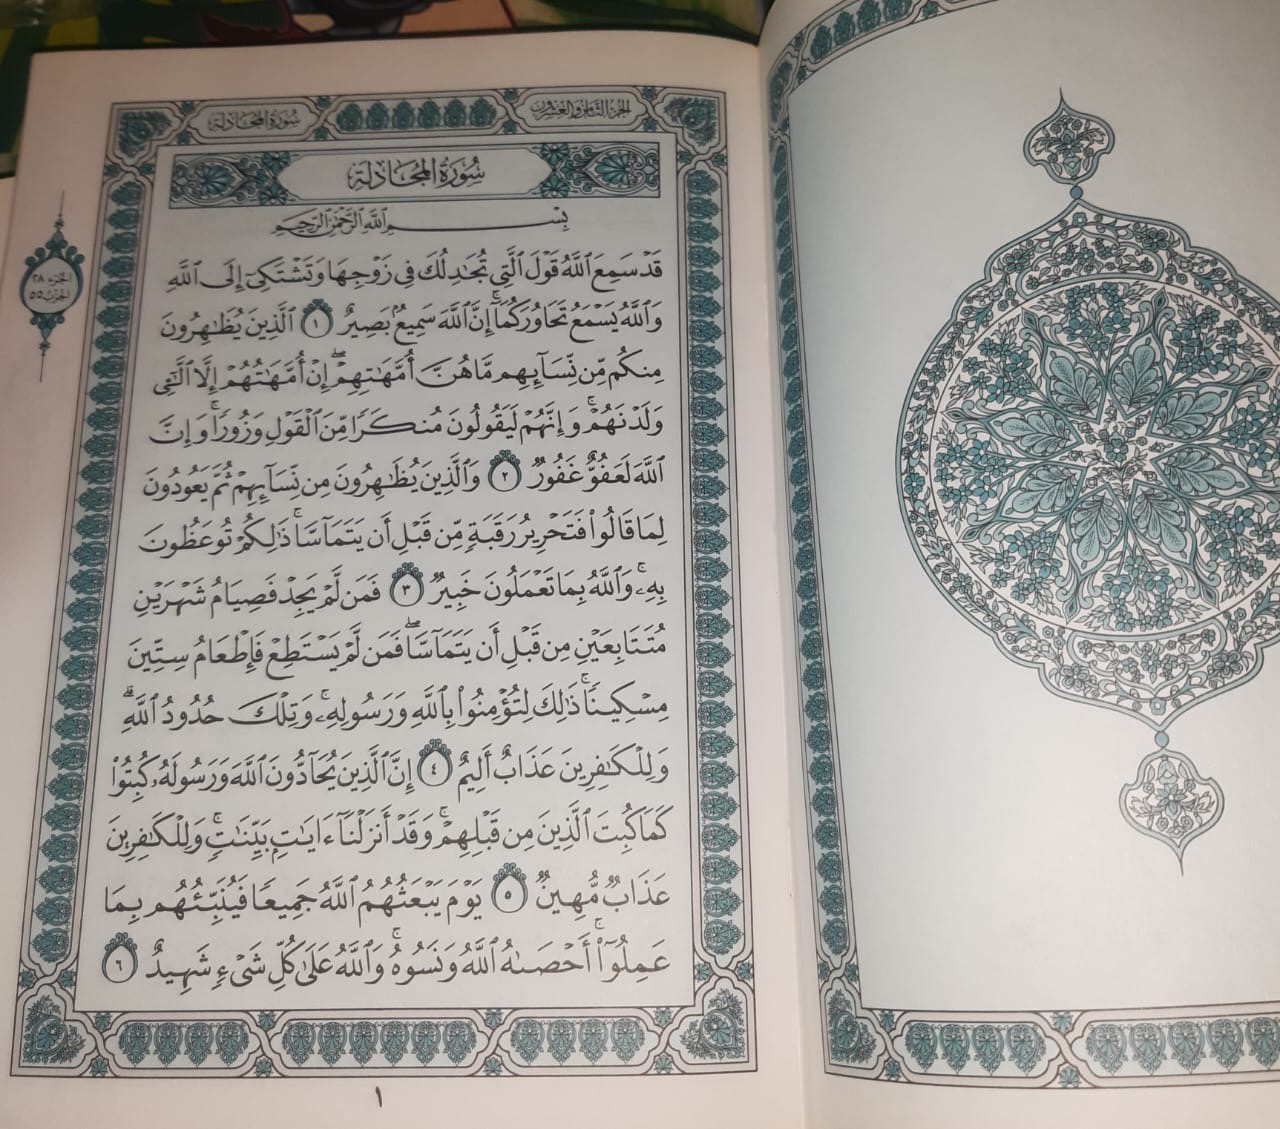 الجزء الثامن والعشرون
سورة المجادلة
سُورَةُ المُجَادلة
بِسْمِ ٱللَّهِ ٱلرَّحْمَٰنِ ٱلرَّحِيمِ
قَدْ سَمِعَ ٱللَّهُ قَوْلَ ٱلَّتِي تُجَٰدِلُكَ فِي زَوْجِهَا وَتَشْتَكِيٓ إِلَى ٱللَّهِ
وَٱللَّهُ يَسْمَعُ تَحَاوُرَكُمَآۚ إِنَّ ٱللَّهَ سَمِيعُۢ بَصِيرٌ ١ ٱلَّذِينَ يُظَٰهِرُونَ
مِنكُم مِّن نِّسَآئِهِم مَّا هُنَّ أُمَّهَٰتِهِمْۖ إِنْ أُمَّهَٰتُهُمْ إِلَّا ٱلَّٰٓـِٔي
وَلَدْنَهُمْۚ وَإِنَّهُمْ لَيَقُولُونَ مُنكَرًا مِّنَ ٱلْقَوْلِ وَزُورًاۚ وَإِنَّ
ٱللَّهَ لَعَفُوٌّ غَفُورٌ ٢ وَٱلَّذِينَ يُظَٰهِرُونَ مِن نِّسَآئِهِمْ ثُمَّ يَعُودُونَ
لِمَا قَالُوا۟ فَتَحْرِيرُ رَقَبَةٍ مِّن قَبْلِ أَن يَتَمَآسَّاۚ ذَٰلِكُمْ تُوعَظُونَ
بِهِۦۚ وَٱللَّهُ بِمَا تَعْمَلُونَ خَبِيرٌ ٣ فَمَن لَّمْ يَجِدْ فَصِيَامُ شَهْرَيْنِ
مُتَتَابِعَيْنِ مِن قَبْلِ أَن يَتَمَآسَّاۖ فَمَن لَّمْ يَسْتَطِعْ فَإِطْعَامُ سِتِّينَ
مِسْكِينًاۚ ذَٰلِكَ لِتُؤْمِنُوا۟ بِٱللَّهِ وَرَسُولِهِۦۚ وَتِلْكَ حُدُودُ ٱللَّهِۗ
وَلِلْكَٰفِرِينَ عَذَابٌ أَلِيمٌ ٤ إِنَّ ٱلَّذِينَ يُحَآدُّونَ ٱللَّهَ وَرَسُولَهُۥ كُبِتُوا۟
كَمَا كُبِتَ ٱلَّذِينَ مِن قَبْلِهِمْۚ وَقَدْ أَنزَلْنَآ ءَايَٰتٍۭ بَيِّنَٰتٍۚ وَلِلْكَٰفِرِينَ
عَذَابٌ مُّهِينٌ ٥ يَوْمَ يَبْعَثُهُمُ ٱللَّهُ جَمِيعًا فَيُنَبِّئُهُم بِمَا
عَمِلُوٓا۟ۚ أَحْصَىٰهُ ٱللَّهُ وَنَسُوهُۚ وَٱللَّهُ عَلَىٰ كُلِّ شَىْءٍ شَهِيدٌ ٦
الجزء ٢٨
الحزب ٥٥
١